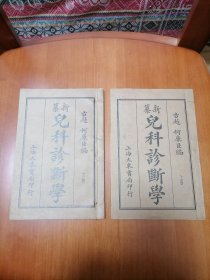 古越 何廉臣編
新纂
兒科診斷學
上海大東書局印行
古越 何廉臣編
新纂
兒科診斷學
上海大東書局印行